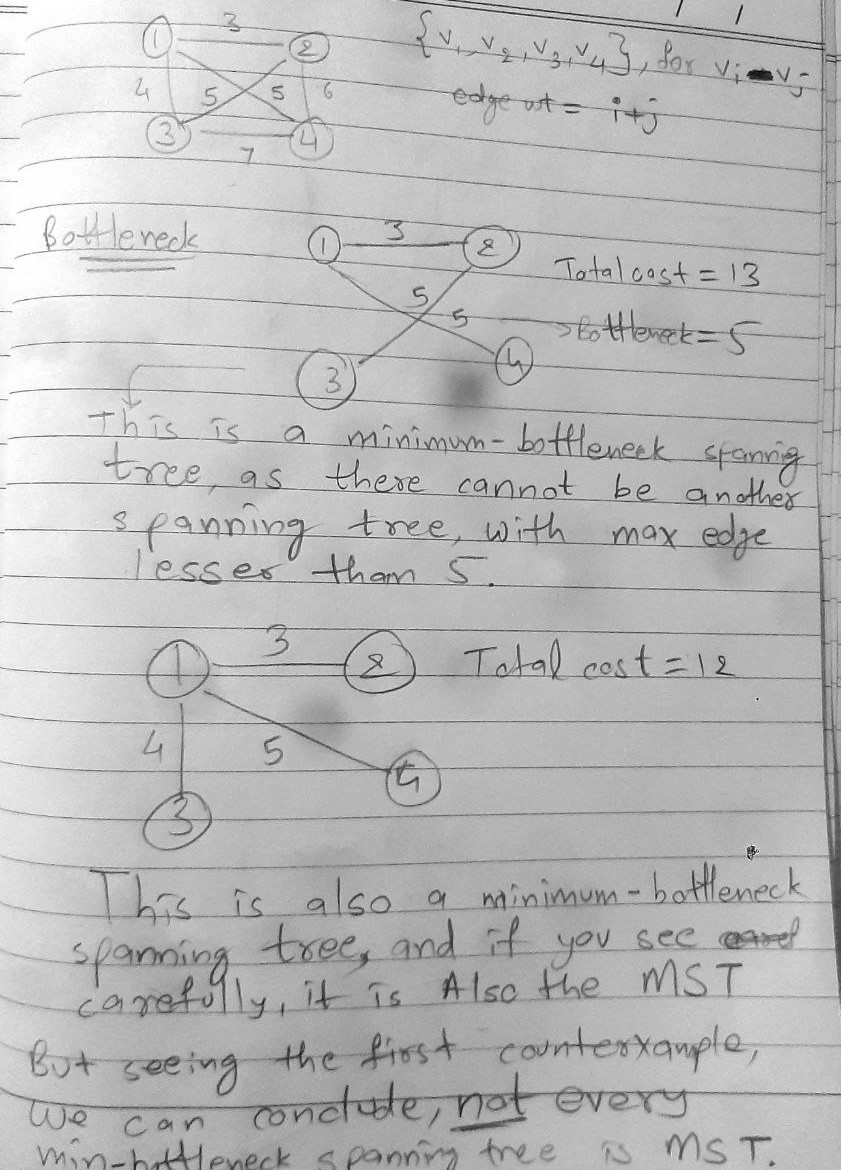 1 3 2 {v1, v2, v3, v4}, for vi-vj
4 5 5 6 edge wt = i+j
3 7 4
Bottleneck
1 3 2
Total cost = 13
5 5 Bottleneck = 5
3 4
This is a minimum-bottleneck spannig
tree, as there cannot be another
spanning tree, with max edge
lesser than 5.
1 3 2 Total cost = 12
4 5
3 4
This is also a minimum-bottleneck
spanning tree, and if you see
carefully, it is Also the MST
But seeing the first counterxample,
we can conclude, not every
min-bottleneck spanning tree is MST.